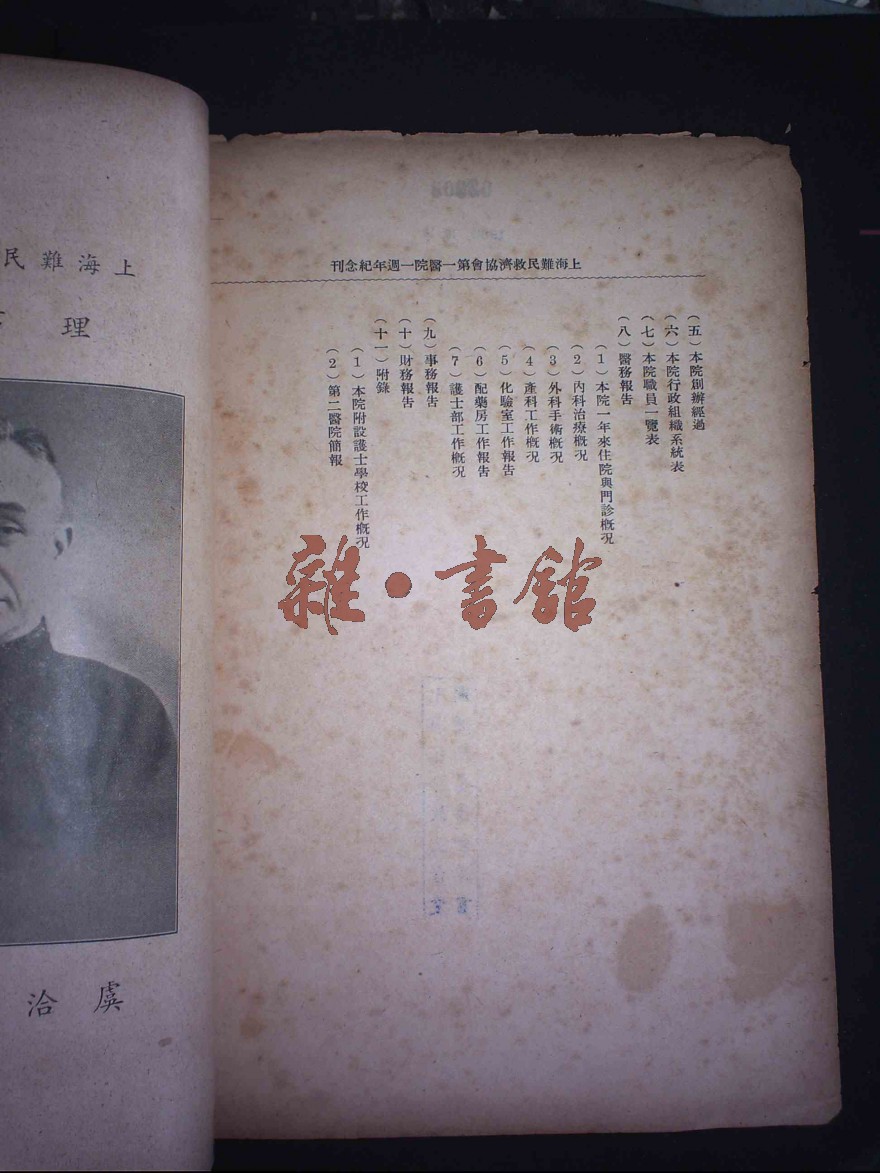 上海難民救濟協會第一醫院一週年紀念刊
（五）本院創辦經過
（六）本院行政組織系統表
（七）本院職員一覽表
（八）醫務報告
（1）本院一年來住院與門診概況
（2）內科治療概況
（3）外科手術概况
（4）產科工作概况
（5）化驗室工作報告
（6）配藥房工作報告
（7）護士部工作概况
（九）事務報告
（十）財務報告
（十一）附錄
（1）本院附設護士學校工作概况
（2）第二醫院簡報
上海難民
理
虞洽
雜·書館